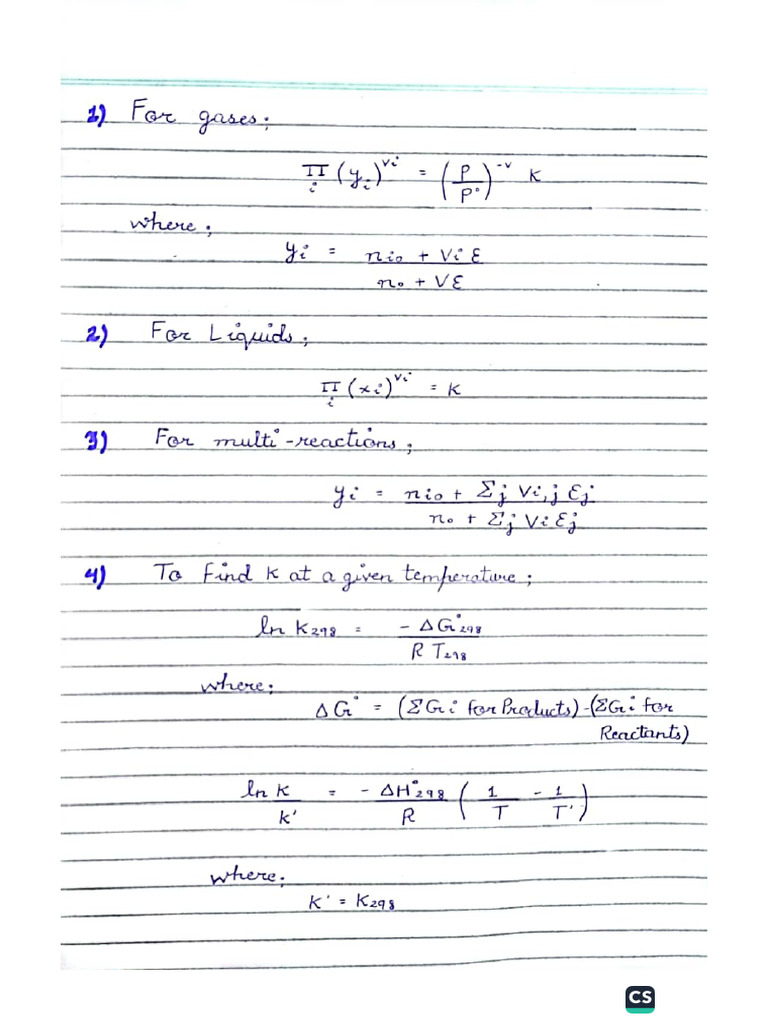 1) For gases;
π_i (y_i)^νi = (P/P°)^-ν K
where;
yi = nio + νi ε / no + νε
2) For Liquids;
π_i (xi)^νi = K
3) For multi-reactions;
yi = nio + Σj νi,j εj / no + Σj νi εj
4) To find K at a given temperature;
ln K298 = -ΔG°298 / R T298
where;
ΔG° = (ΣGi for Products)-(ΣGi for
Reactants)
ln K/K' = -ΔH°298/R (1/T - 1/T')
where;
K' = K298
CS